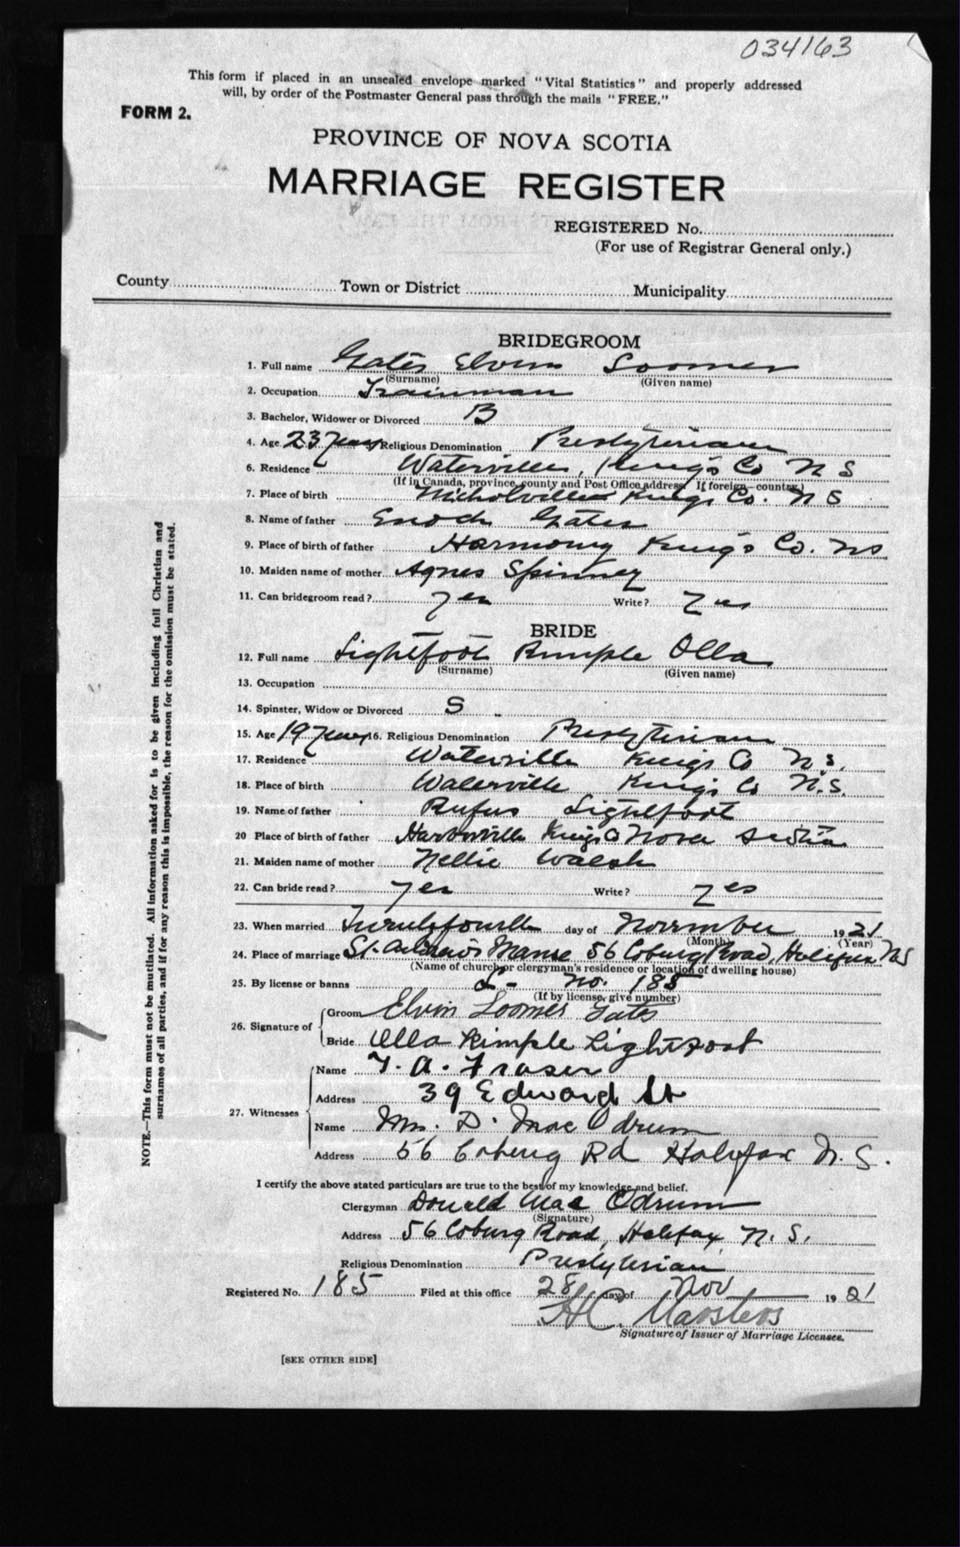 034163
This form if placed in an unsealed envelope marked "Vital Statistics" and properly addressed
will, by order of the Postmaster General pass through the mails "FREE."
FORM 2.
PROVINCE OF NOVA SCOTIA
MARRIAGE REGISTER
REGISTERED No.
(For use of Registrar General only.)
County Town or District Municipality
BRIDEGROOM
1. Full name Gates Elvin Loomer
(Surname) (Given name)
2. Occupation Trainman
3. Bachelor, Widower or Divorced B
4. Age 23 years Religious Denomination Presbyterian
6. Residence Waterville, Kings Co N S
(If in Canada, province, county and Post Office address. If foreign—country.)
7. Place of birth Nicholville Kings Co. N S
8. Name of father Enoch Gates
9. Place of birth of father Harmony Kings Co. NS
10. Maiden name of mother Agnes Spinney
11. Can bridegroom read? yes Write? yes
BRIDE
12. Full name Lightfoot Rimple Olla
(Surname) (Given name)
13. Occupation
14. Spinster, Widow or Divorced S
15. Age 19 years 16. Religious Denomination Presbyterian
17. Residence Waterville Kings Co N.S.
18. Place of birth Waterville Kings Co N.S.
19. Name of father Rufus Lightfoot
20 Place of birth of father Harborville Kings Co Nova Scotia
21. Maiden name of mother Nellie Walsh
22. Can bride read? yes Write? yes
23. When married Twentyfourth day of November 1921
(Month) (Year)
24. Place of marriage St. Andrew's Manse 56 Coburg Road, Halifax NS
(Name of church or clergyman's residence or location of dwelling house)
25. By license or banns L- No. 185
(If by license, give number)
26. Signature of
Groom Elvin Loomer Gates
Bride Olla Rimple Lightfoot
27. Witnesses
Name F. A. Fraser
Address 39 Edward St
Name Mrs. D. Mac Odrum
Address 56 Coburg Rd Halifax N. S.
I certify the above stated particulars are true to the best of my knowledge and belief.
Clergyman Donald Mac Odrum
(Signature)
Address 56 Coburg Road, Halifax, N. S.
Religious Denomination Presbyterian
Registered No. 185 Filed at this office 28 day of Nov 1921
H C. Marsters
Signature of Issuer of Marriage Licenses.
[SEE OTHER SIDE]
NOTE.—This form must not be mutilated. All information asked for is to be given including full Christian and
surnames of all parties, and if for any reason this is impossible, the reason for the omission must be stated.